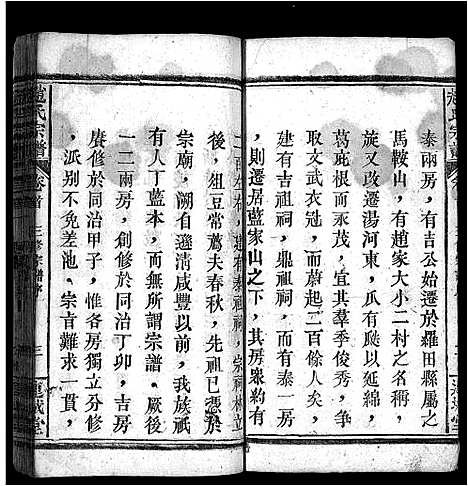 泰兩房，有吉公始遷於羅田縣屬之
馬鞍山，有趙家大小二村之名稱，
旋又改遷湯河東，瓜瓞於以延綿，
葛庇根枝以茂，宜其羣季俊秀，
取文武衣冠，而蔚起二百餘人矣，
建有吉祖祠，鼎祖祠，而有泰一房
，則遷居藍家山之下，其房衆約有
建有泰祖祠，宗祠林立
後，俎豆常薦夫春秋，先祖已憑於
宗廟，溯自遜清咸豐以前，我族祇
有人丁藍本，而無所謂宗譜，厥後
一二兩房，創修於同治丁卯，吉房
賡修於同治甲子，惟各房獨立分修
，派别不免差池，宗旨難求一貫，
趙氏宗譜
卷首
三修宗譜序
三